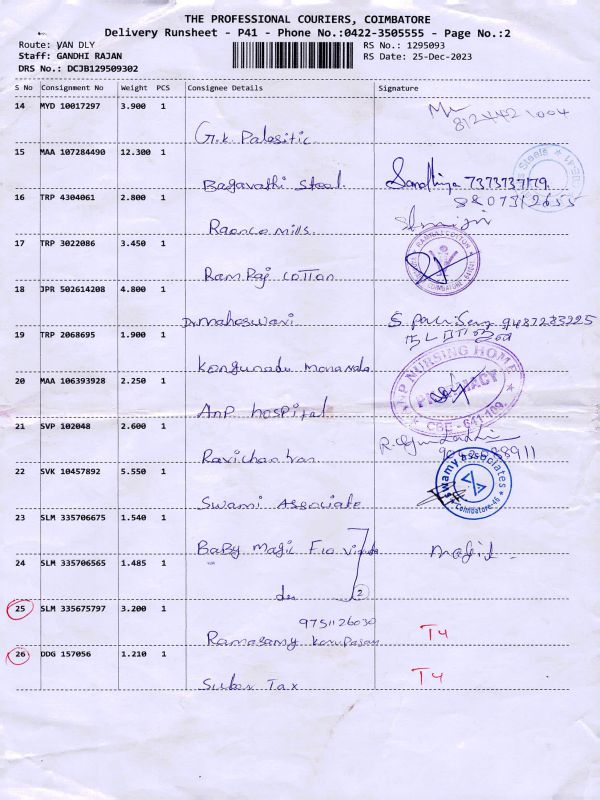 THE PROFESSIONAL COURIERS, COIMBATORE
Delivery Runsheet - P41 - Phone No.:0422-3505555 - Page No.:2
Route: VAN DLY
Staff: GANDHI RAJAN
DRS No.: DCJB129509302
RS No.: 1295093
RS Date: 25-Dec-2023
S No Consignment No Weight PCS Consignee Details Signature
14 MYD 10017297 3.900 1
8124421004
G.K. Palositic
15 MAA 107284490 12.300 1
Bagavathi Steel. Sandhiya 7373737179
16 TRP 4304061 2.800 1
8807312655
Raonco Mills.
17 TRP 3022086 3.450 1
RAMRAJ COTTON
COIMBATORE
Ram Raj Cotton
18 JPR 502614208 4.800 1
Dr Mahaswari 9487233225
19 TRP 2068695 1.900 1
Kongunadu
20 MAA 106393928 2.250 1
NURSING HOME
PHARMACY
CBE - 641 109
Anp hospital
21 SVP 102048 2.600 1
Ravichantran
22 SVK 10457892 5.550 1
Swamy Associates
Coimbatore-45
Swami Associate
23 SLM 335706675 1.540 1
Baby Magic
24 SLM 335706565 1.485 1
2
25 SLM 335675797 3.200 1
9751126030
Ramasamy T4
26 DDG 157056 1.210 1
T4
Suber Tax